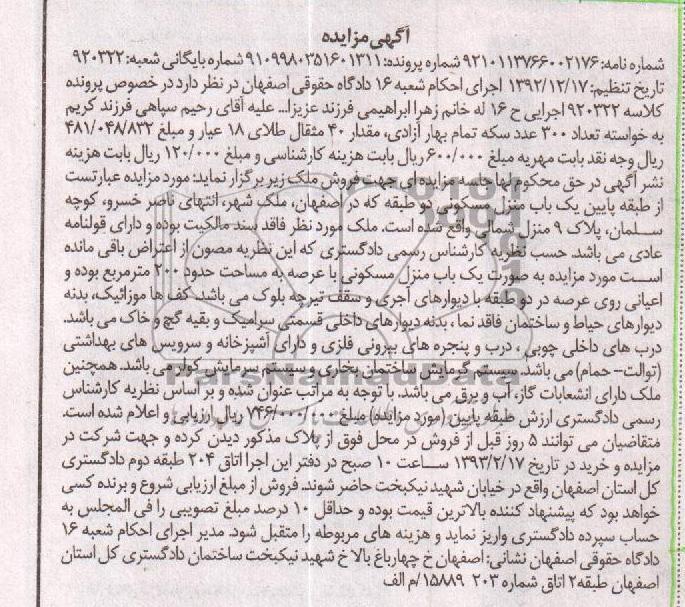 آگهی مزایده
شماره نامه: ۹۲۱۰۱۱۳۷۶۶۰۰۲۱۷۶ شماره پرونده: ۹۱۰۹۹۸۰۳۵۱۶۰۱۳۱۱ شماره بایگانی شعبه: ۹۲۰۳۲۲
تاریخ تنظیم: ۱۳۹۲/۱۲/۱۷ اجرای احکام شعبه ۱۶ دادگاه حقوقی اصفهان در نظر دارد در خصوص پرونده
کلاسه ۹۲۰۳۲۲ اجرایی ح ۱۶ له خانم زهرا ابراهیمی فرزند عزیزا... علیه آقای رحیم سپاهی فرزند کریم
به خواسته تعداد ۳۰۰ عدد سکه تمام بهار آزادی، مقدار ۴۰ مثقال طلای ۱۸ عیار و مبلغ ۴۸۱/۰۴۸/۸۳۲
ریال وجه نقد بابت مهریه مبلغ ۶۰۰/۰۰۰ ریال بابت هزینه کارشناسی و مبلغ ۱۲۰/۰۰۰ ریال بابت هزینه
نشر آگهی در حق محکوم لها جلسه مزایده ای جهت فروش ملک زیر برگزار نماید: مورد مزایده عبارتست
از طبقه پایین یک باب منزل مسکونی دو طبقه که در اصفهان، ملک شهر، انتهای ناصر خسرو، کوچه
سلمان، پلاک ۹ منزل شمالی واقع شده است. ملک مورد نظر فاقد سند مالکیت بوده و دارای قولنامه
عادی می باشد. حسب نظریه کارشناس رسمی دادگستری که این نظریه مصون از اعتراض باقی مانده
است مورد مزایده به صورت یک باب منزل مسکونی با عرصه به مساحت حدود ۲۰۰ مترمربع بوده و
اعیانی روی عرصه در دو طبقه با دیوارهای آجری و سقف تیرچه بلوک می باشد. کف ها موزائیک، بدنه
دیوارهای حیاط و ساختمان فاقد نما، بدنه دیوارهای داخلی قسمتی سرامیک و بقیه گچ و خاک می باشد.
درب های داخلی چوبی، درب و پنجره های بیرونی فلزی و دارای آشپزخانه و سرویس های بهداشتی
(توالت- حمام) می باشد. سیستم گرمایش ساختمان بخاری و سیستم سرمایش کولر می باشد. همچنین
ملک دارای انشعابات گاز، آب و برق می باشد. با توجه به مراتب عنوان شده و بر اساس نظریه کارشناس
رسمی دادگستری ارزش طبقه پایین (مورد مزایده) مبلغ ۷۴۶/۰۰۰/۰۰۰ ریال ارزیابی و اعلام شده است.
متقاضیان می توانند ۵ روز قبل از فروش در محل فوق از پلاک مذکور دیدن کرده و جهت شرکت در
مزایده و خرید در تاریخ ۱۳۹۳/۲/۱۷ ساعت ۱۰ صبح در دفتر این اجرا اتاق ۲۰۴ طبقه دوم دادگستری
کل استان اصفهان واقع در خیابان شهید نیکبخت حاضر شوند. فروش از مبلغ ارزیابی شروع و برنده کسی
خواهد بود که پیشنهاد کننده بالاترین قیمت بوده و حداقل ۱۰ درصد مبلغ تصویبی را فی المجلس به
حساب سپرده دادگستری واریز نماید و هزینه های مربوطه را متقبل شود. مدیر اجرای احکام شعبه ۱۶
دادگاه حقوقی اصفهان نشانی: اصفهان خ چهارباغ بالا خ شهید نیکبخت ساختمان دادگستری کل استان
اصفهان طبقه۲ اتاق شماره ۲۰۳ ۱۵۸۸۹/م الف
ParsNamadData